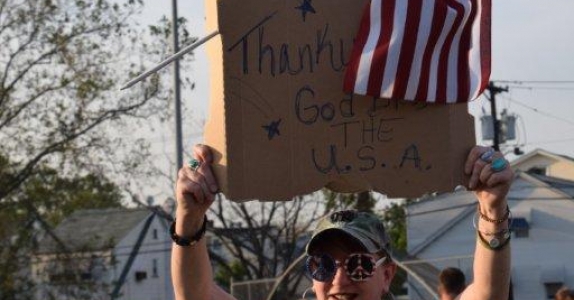 Thank
God
THE
U.S.A.